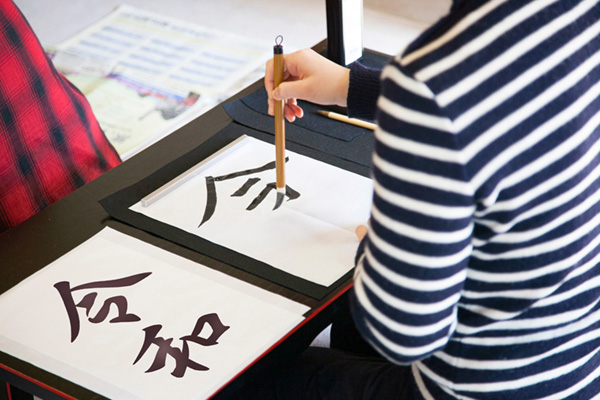 令
令和